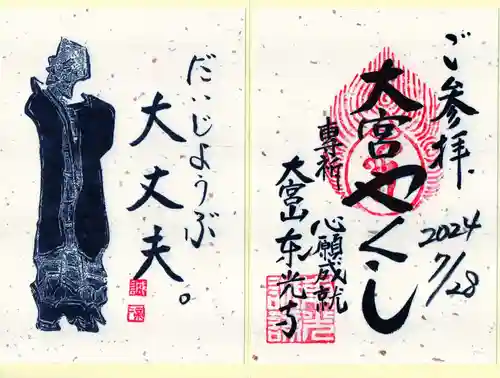 だいじようぶ
大丈夫。
ご参拝
2024
7/28
大宮やくし
専祈
心願成就
大宮山 东光寺